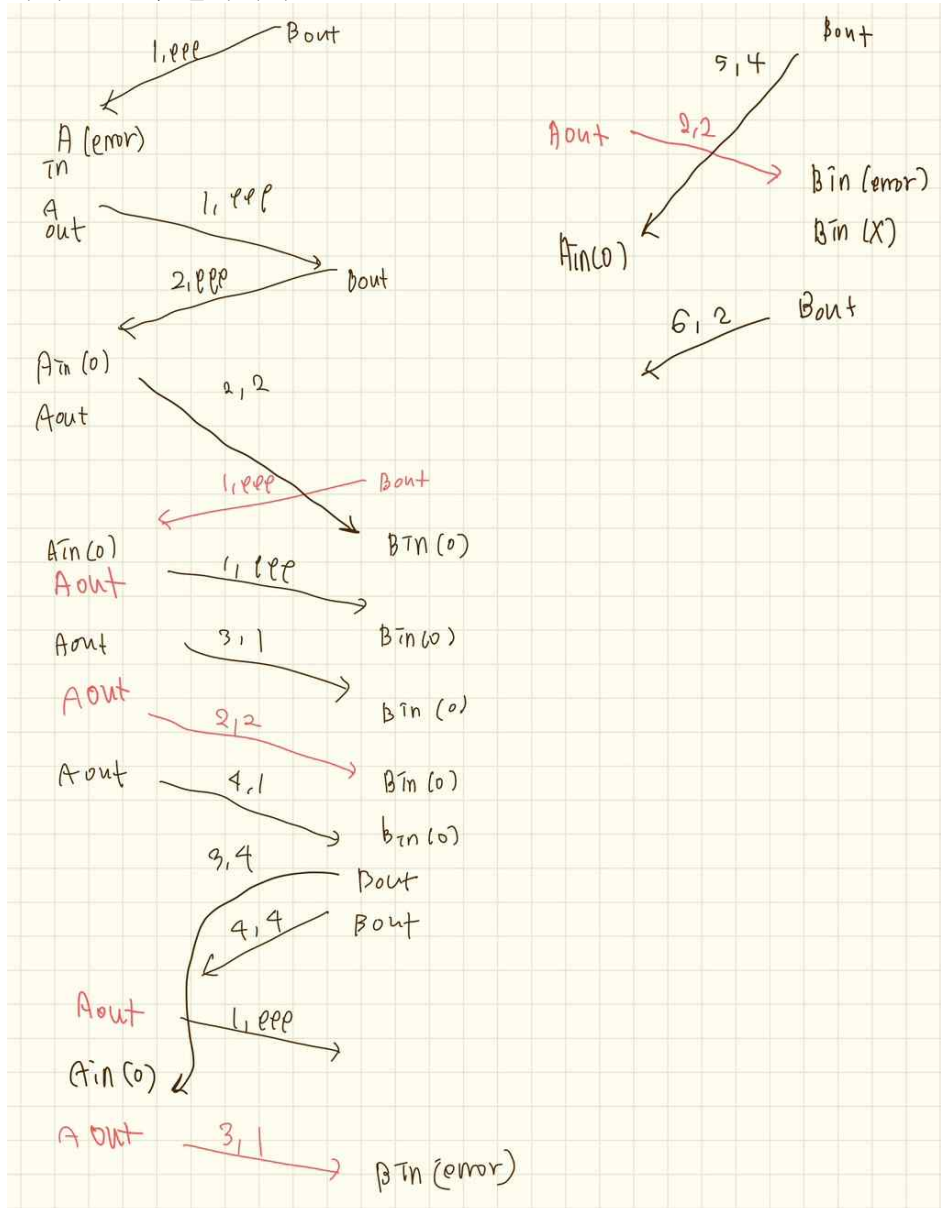 Bout
1,eee
A (error)
in
A
out
1, eee
2,eee
Bout
Ain (0)
Aout
2,2
1,eee
Bout
Ain (0)
Bin (0)
Aout
1, eee
Aout
3,1
Bin (0)
Aout
2,2
Bin (0)
Aout
4,1
Bin (0)
bin (0)
3,4
Bout
4,4
Bout
Aout
1,eee
Ain (0)
Aout
3,1
Bin (error)
Bout
5,4
Aout
2,2
Bin (error)
Bin (X)
Ain(0)
6,2
Bout